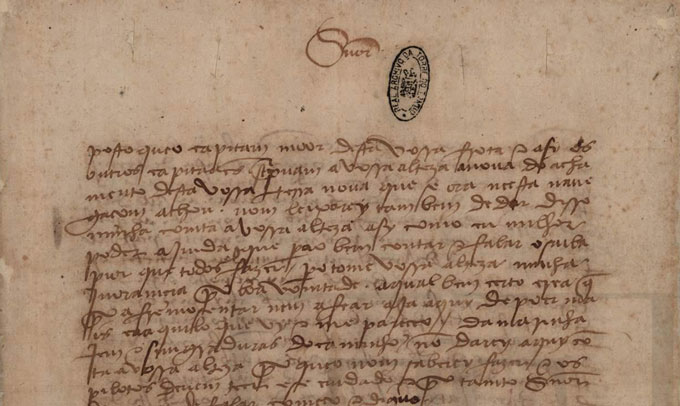 Snõr
REAL ARCHIVO DA TORRE DO TOMBO
posto que o capitam moor desta vossa frota e asy os
outros capitaães screpuam a vossa alteza a noua do acha
mento desta vossa terra noua que se ora neesta naue
gaçom achou. nom leixarey tambem de dar disso
minha comta a vossa alteza asy como eu milhor
poder ajmda que pera o bem contar e falar o saiba
pior que todos fazer. pero tome vossa alteza minha
jnoramçia por boa vomtade. a qual bem çerto crea q̃
por afremosentar nem afear aja aquy de poer ma
is ca aquilo que vy e me pareçeo. da marinha
jem e simgraduras do caminho no darey aquy cõ
ta a vossa alteza por que o nom saberey fazer e os
pilotos deuem teer ese cuidado e por tanto Snõr
falar começo e diguo